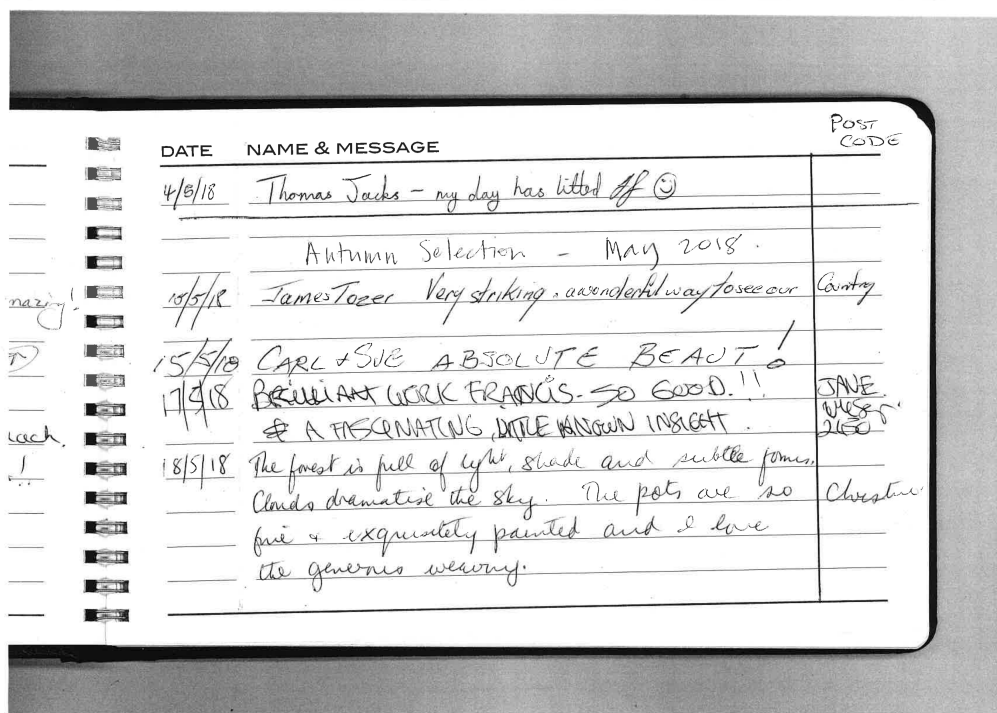 POST
CODE
DATE NAME & MESSAGE
4/5/18 Thomas Jacks - my day has litted off ☺
Autumn Selection - May 2018.
nazing!
10/5/18 James Tozer Very striking. a wonderful way to see our Country
15/5/18 CARL + SUE ABSOLUTE BEAUT!
17/5/18 BRILLIANT WORK FRANCIS - SO GOOD.!! JANE
& A FASCINATING, LITTLE KNOWN INSIGHT. 2450
18/5/18 The forest is full of light, shade and subtle forms.
Clouds dramatise the sky. The pots are so Christine
fine + exquisitely painted and I love
the generous weaving.